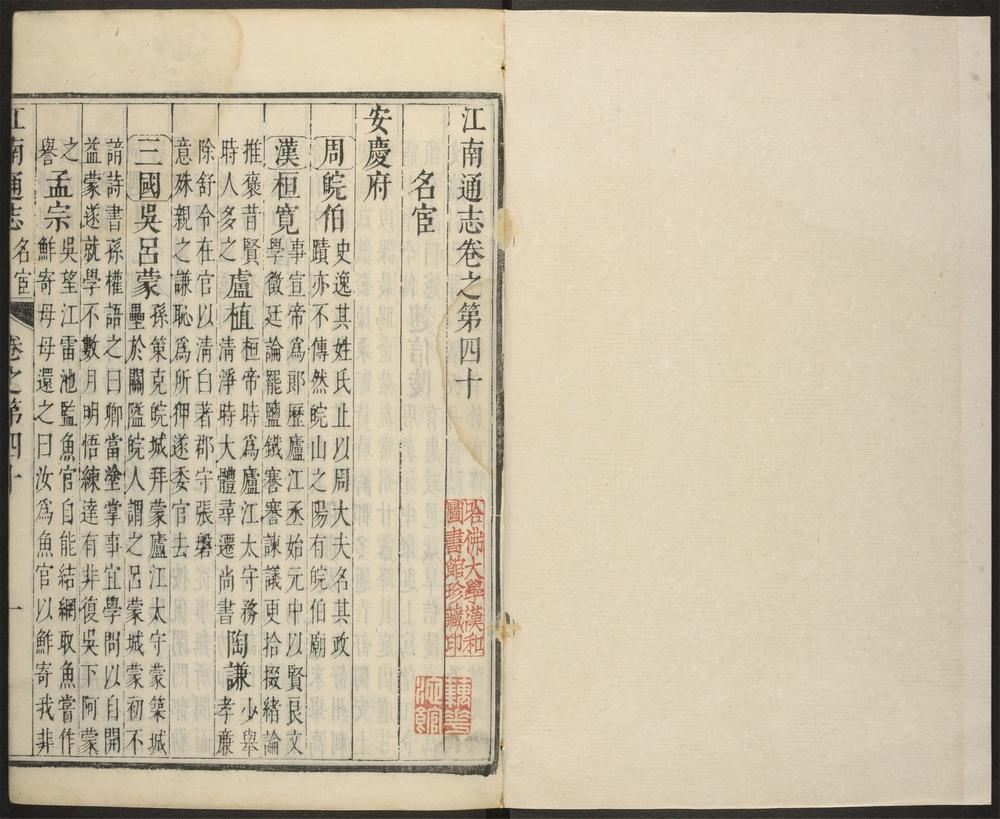 江南通志卷之第四十
名宦
安慶府
周皖伯
史逸其姓氏止以周大夫名其政
蹟亦不傳然皖山之陽有皖伯廟
漢桓寬
事宣帝爲郎歷廬江丞始元中以賢良文
學徵廷論罷鹽鐵謇謇諫議更拾掇緒論
推褒昔賢
時人多之
盧植
桓帝時爲廬江太守務
清淨時大體尋遷尚書
陶謙
少舉
孝廉
除舒令在官以清白著郡守張磐
意殊親之謙恥爲所狎遂委官去
三國吳呂蒙
孫策克皖城拜蒙廬江太守蒙築城
壘於關隘皖人謂之呂蒙城蒙初不
諳詩書孫權語之曰卿當塗掌事宜學問以自開
益蒙遂就學不數月明悟練達有非復吳下阿蒙
之
譽
孟宗
吳望江雷池監魚官自能結網取魚嘗作
鮮寄母母還之曰汝爲魚官以鮮寄我非
江南通志
名宦
卷之第四十
一
哈佛大學漢和
圖書館珍藏印